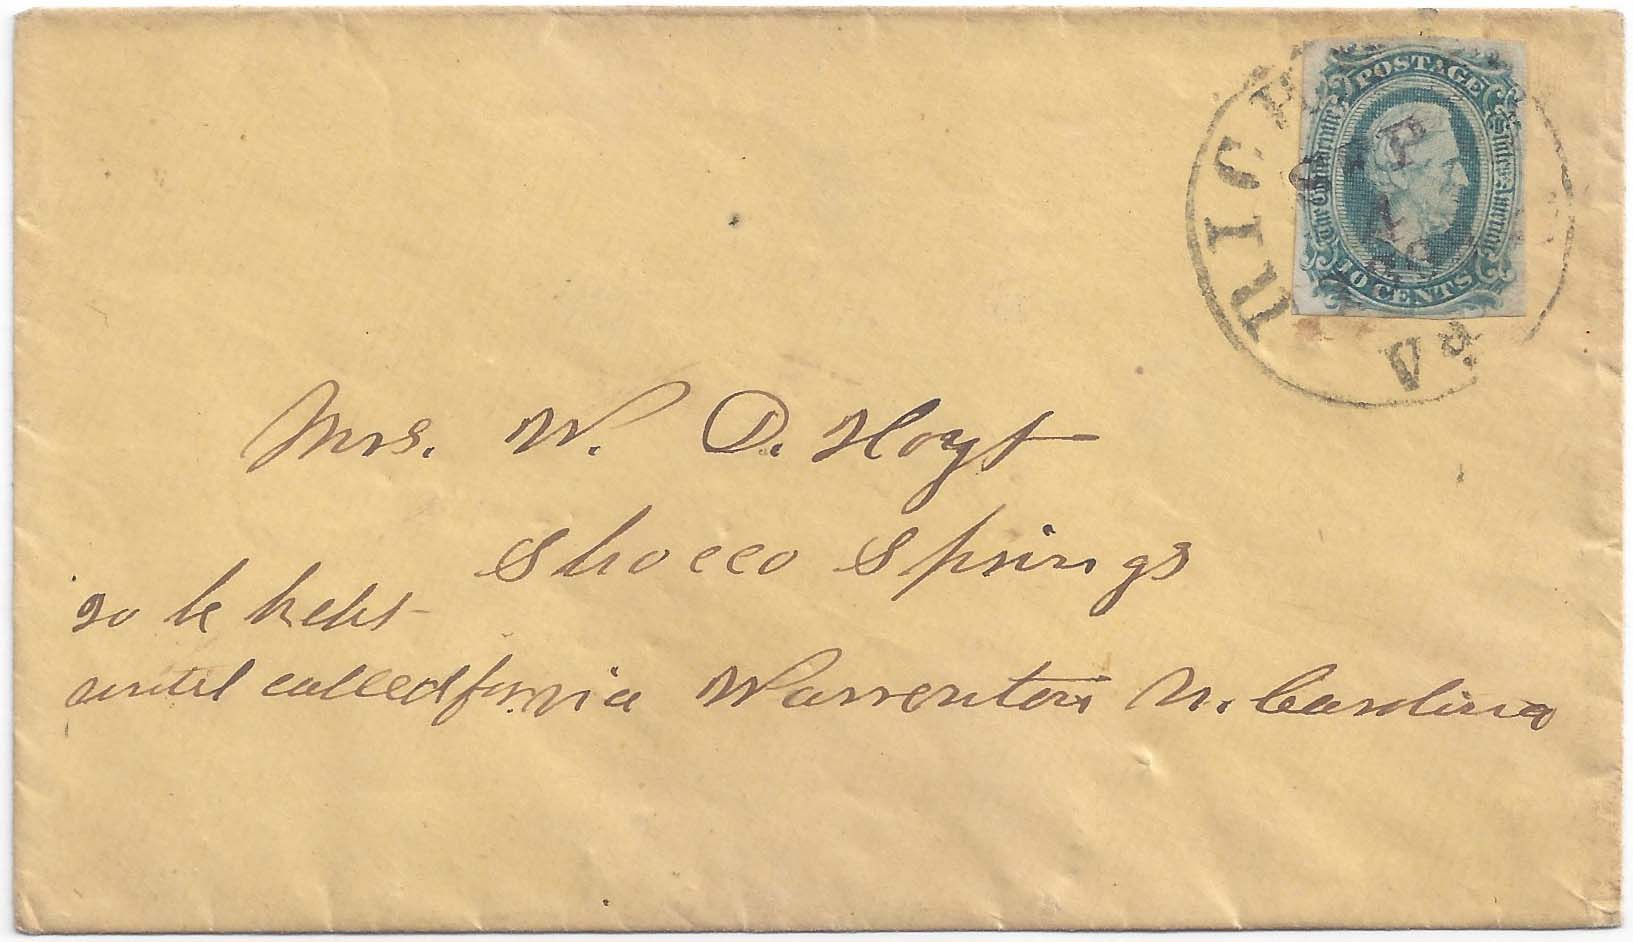 POSTAGE
The Confederate States of America
10 CENTS
RICH
VA
Mrs. W. D. Hoyt
Shocco Springs
to be kept
until called for via Warrenton N. Carolina